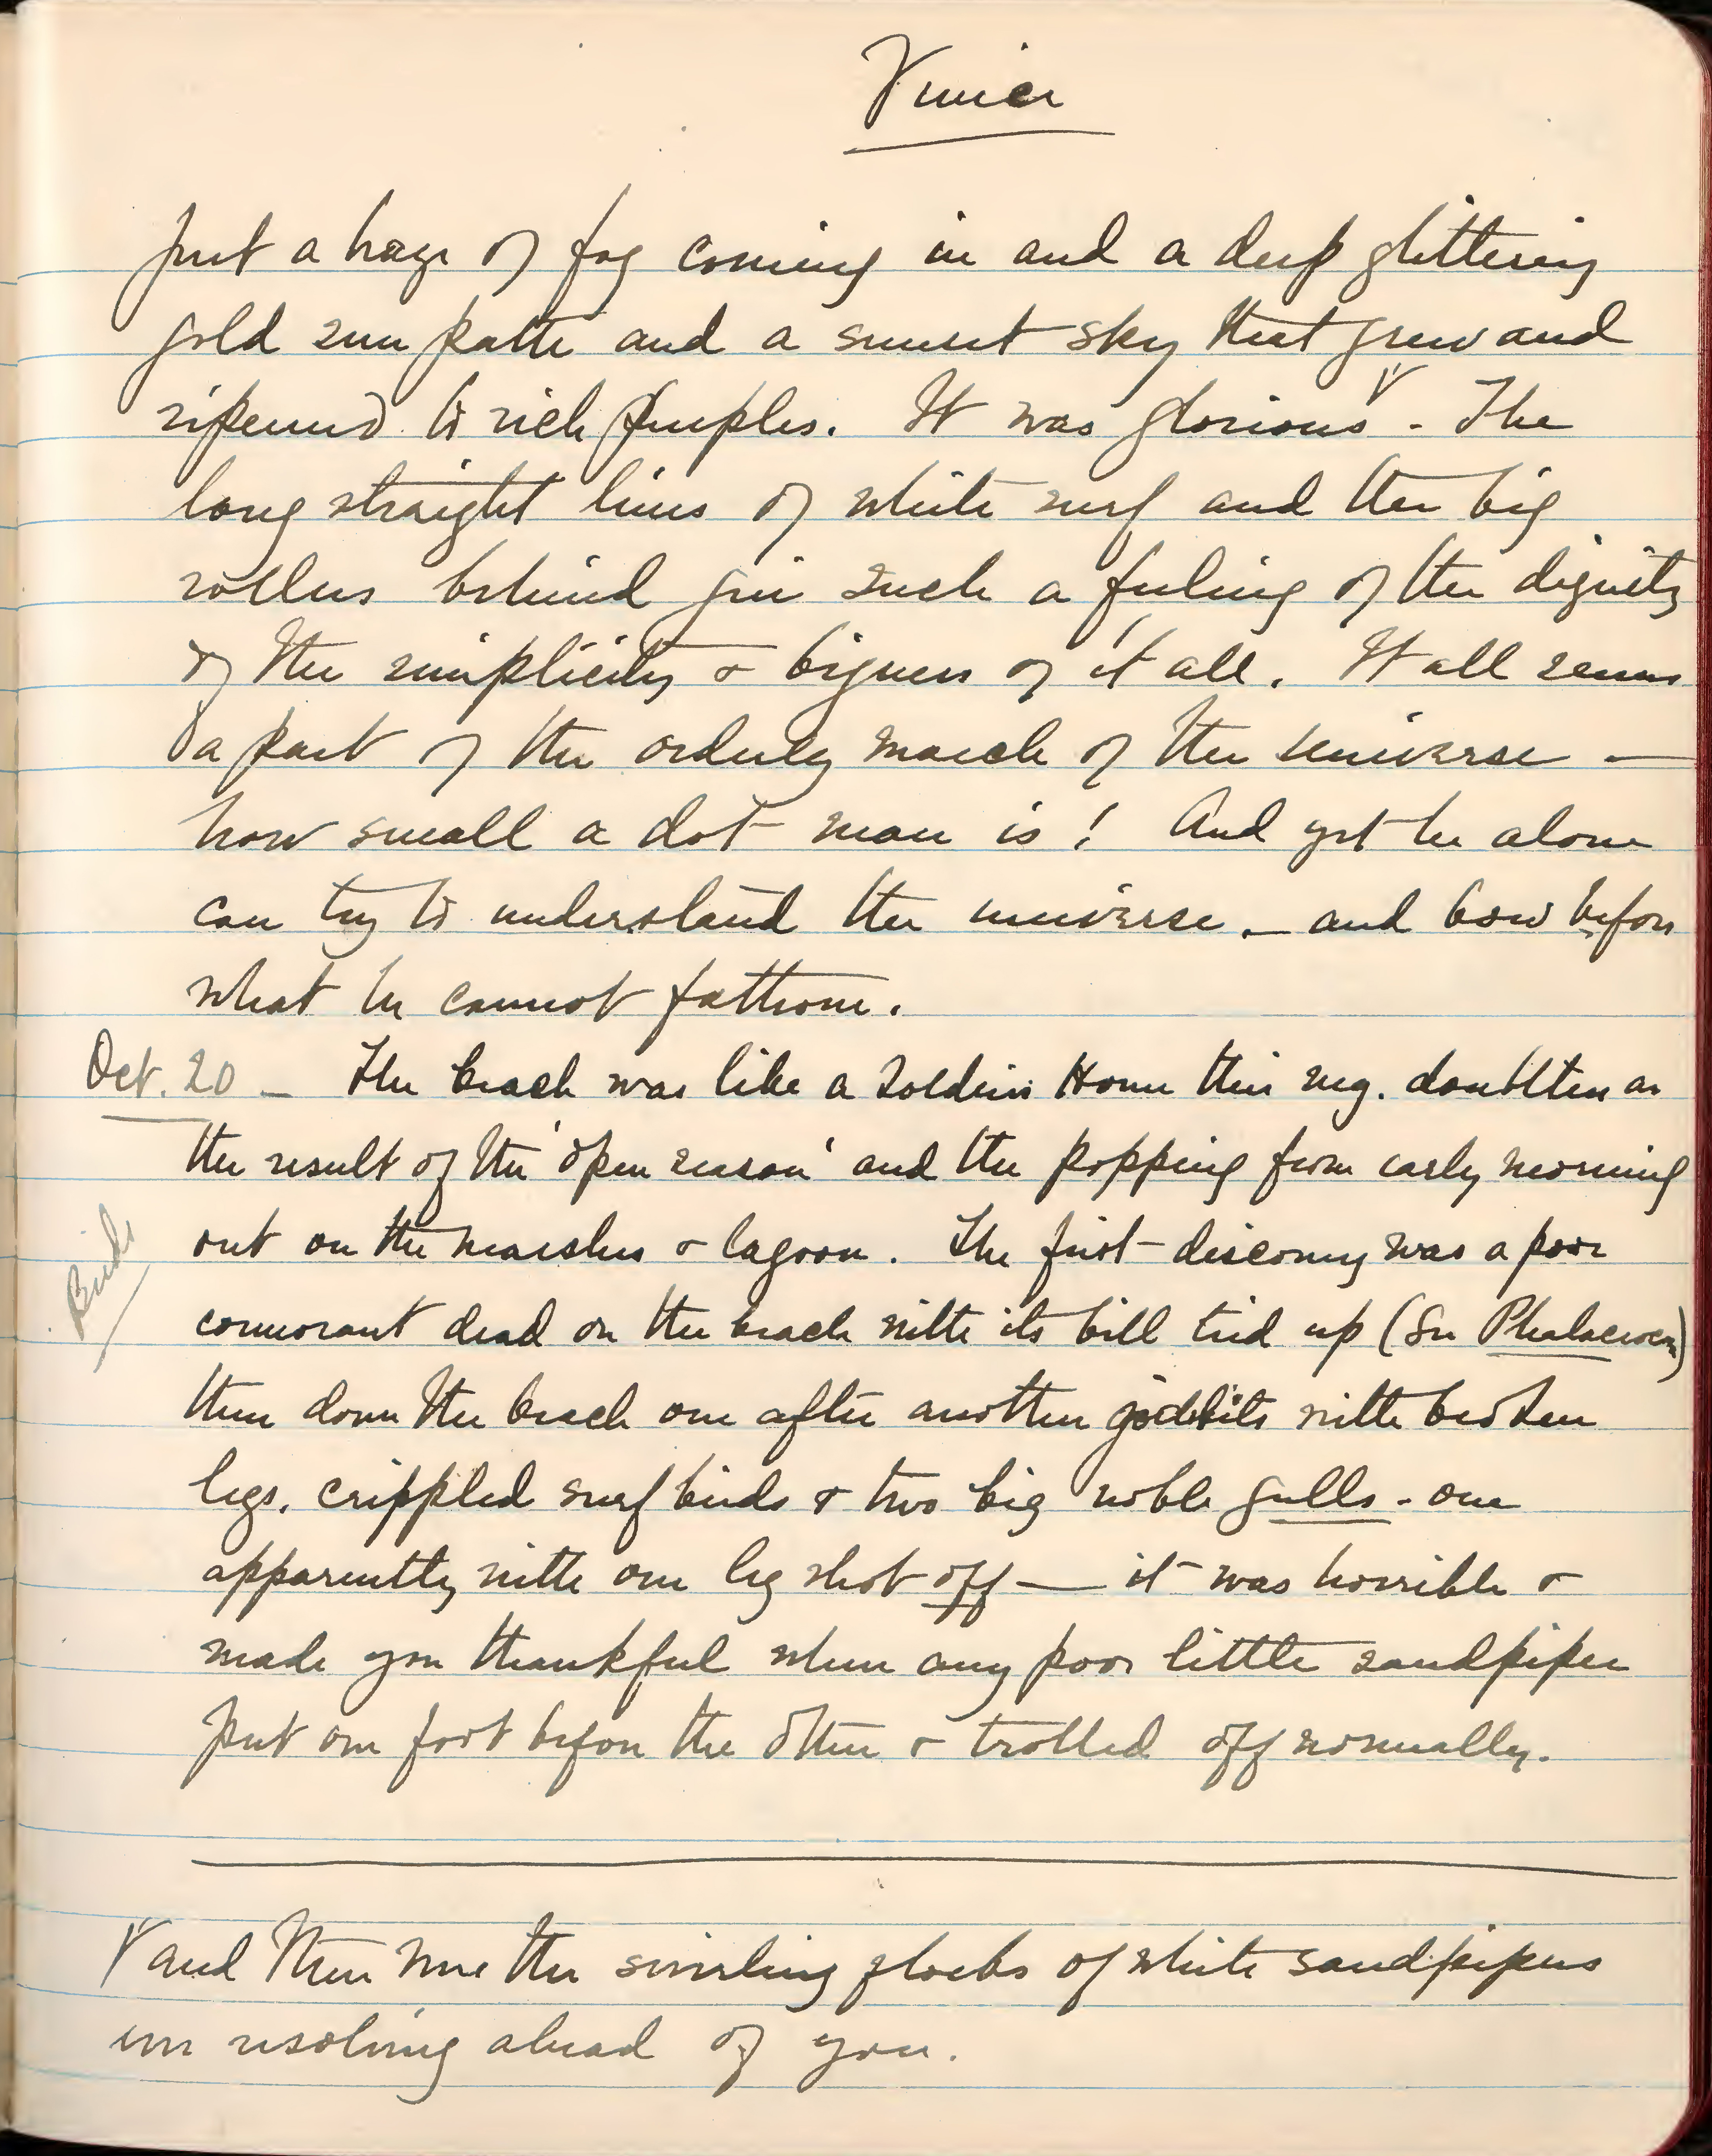 Venice
just a haze of fog coming in and a deep glittering
gold sun path and a sunset sky that grew and
ripened to rich purples. It was glorious ٧. The
long straight lines of white surf and the big
rollers behind give such a feeling of the dignity
of the simplicity & bigness of it all. It all seems
a part of the orderly march of the universe —
how small a dot man is! And yet he alone
can try to understand the universe — and bow before
what he cannot fathom.
Oct. 20 — The beach was like a Soldiers Home this mg. doubtless as
the result of the 'open season' and the popping from early morning
out on the marshes & lagoon. The first discovery was a poor
Birds
cormorant dead on the beach with its bill tied up (See Phalacrocorax)
then down the beach one after another godwits with broken
legs, crippled surf birds & two big noble gulls - one
apparently with one leg shot off — it was horrible &
made you thankful when any poor little sandpiper
put one foot before the other & trotted off normally.
٧ and then were the swirling flocks of white sandpipers
ever resolving ahead of you.